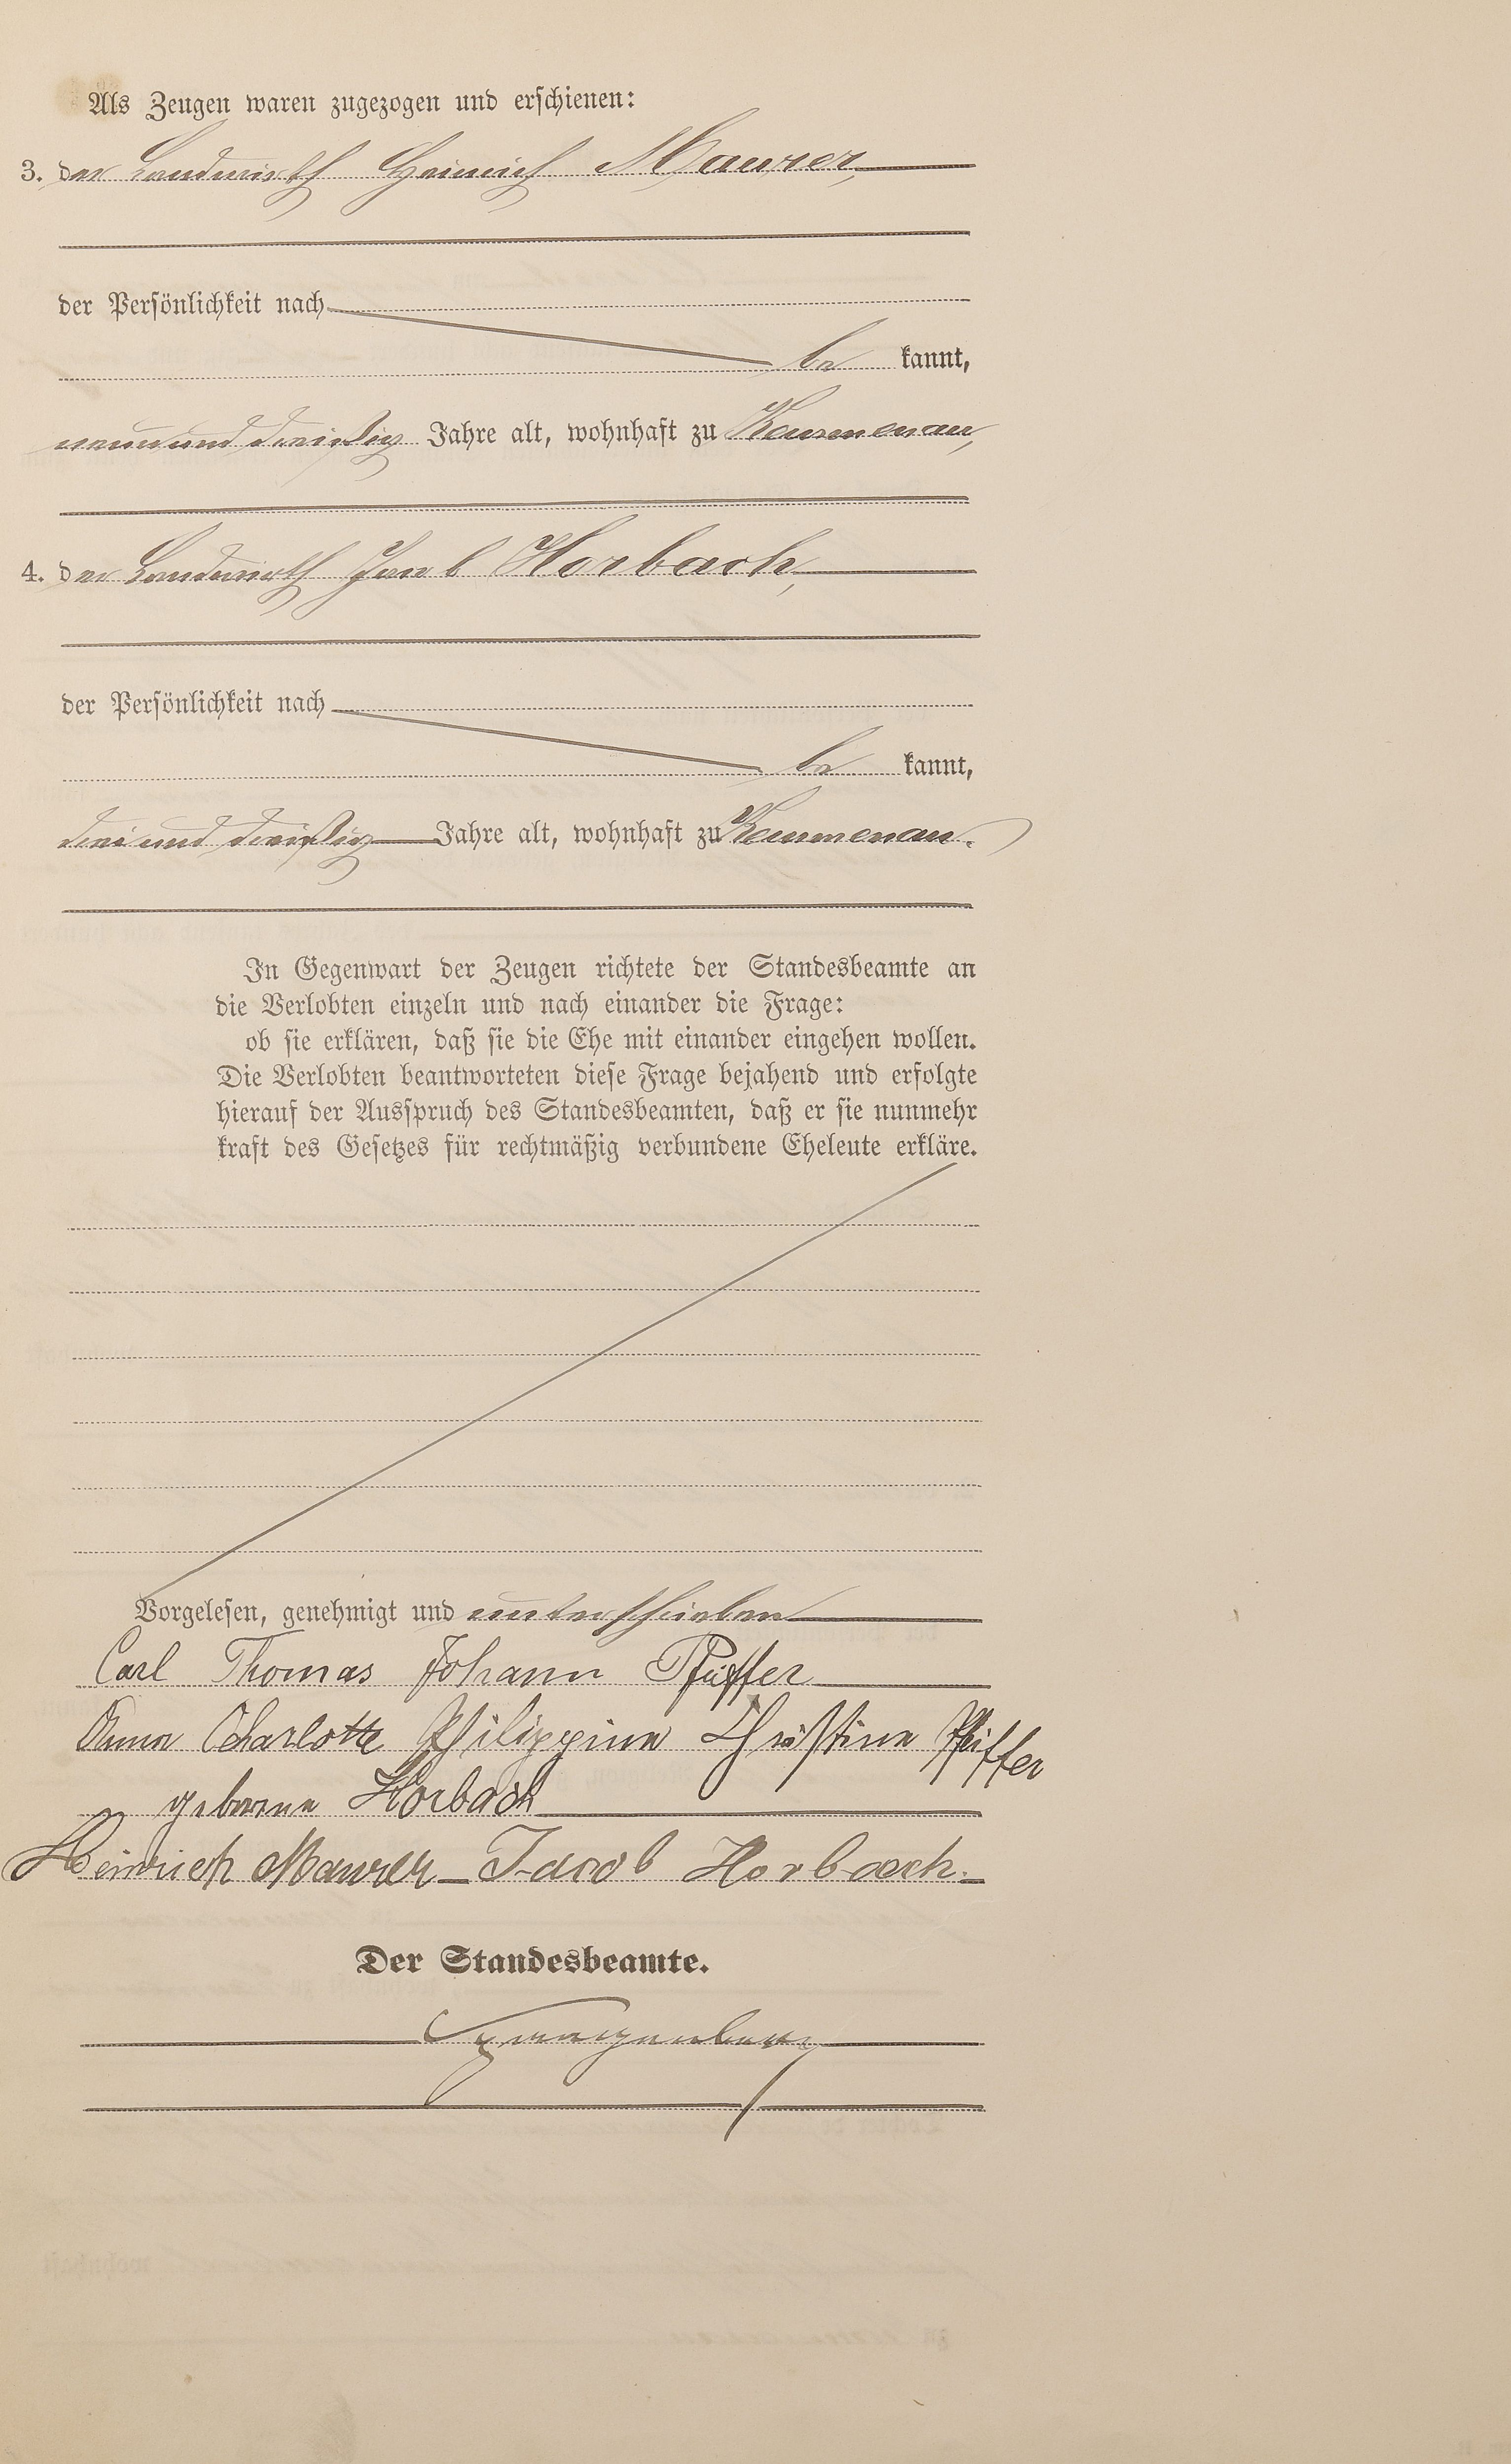 Als Zeugen waren zugezogen und erschienen:
3. der Landwirth Heinrich Maurer,
der Persönlichkeit nach
be kannt,
neun und dreißig Jahre alt, wohnhaft zu Kemmenau,
4. der Landwirth Jacob Horbach,
der Persönlichkeit nach
be kannt,
drei und dreißig Jahre alt, wohnhaft zu Kemmenau.
In Gegenwart der Zeugen richtete der Standesbeamte an
die Verlobten einzeln und nach einander die Frage:
ob sie erklären, daß sie die Ehe mit einander eingehen wollen.
Die Verlobten beantworteten diese Frage bejahend und erfolgte
hierauf der Ausspruch des Standesbeamten, daß er sie nunmehr
kraft des Gesetzes für rechtmäßig verbundene Eheleute erkläre.
Vorgelesen, genehmigt und unterschrieben
Carl Thomas Johann
Anna Charlotte Philippine Christine
geborene Horbach
Heinrich Maurer Jacob Horbach.
Der Standesbeamte.